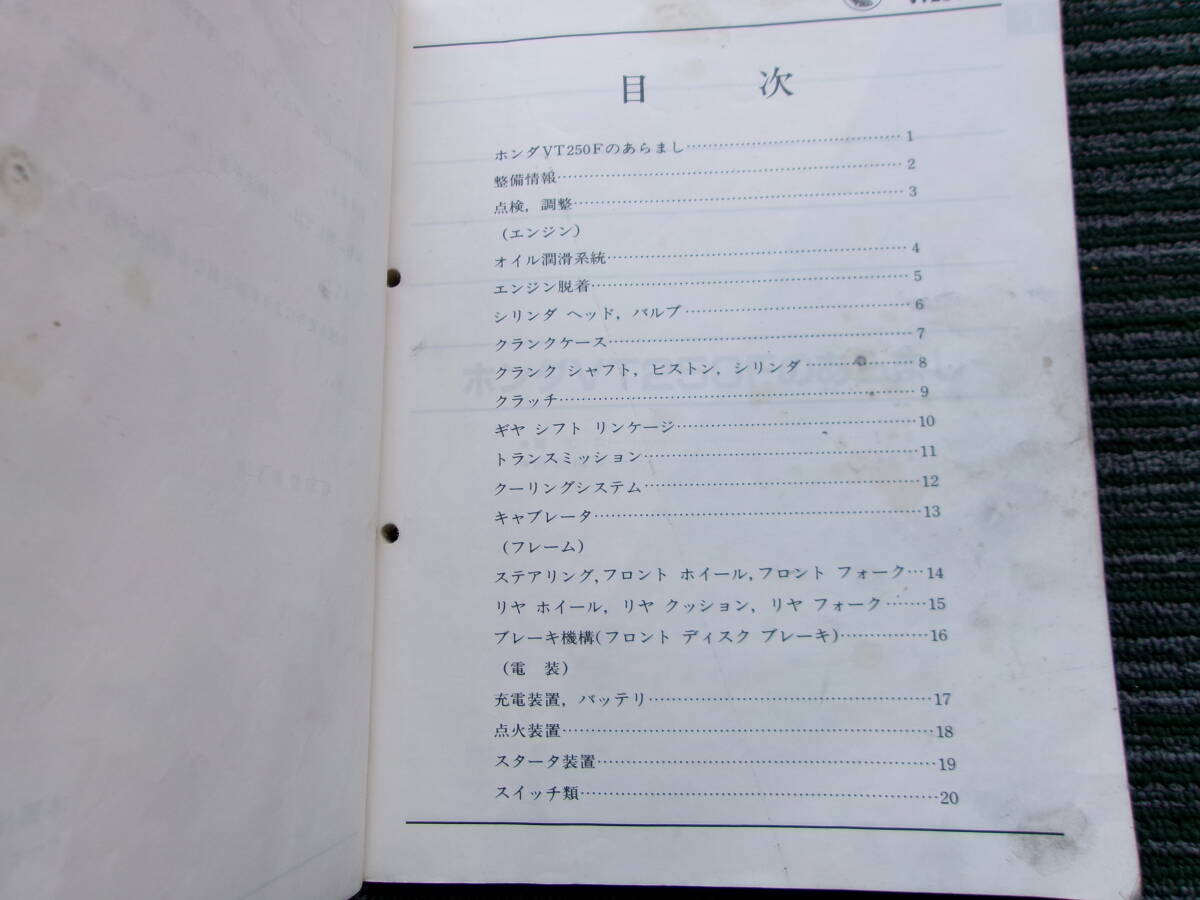 目 次
ホンダVT250Fのあらまし……………………………1
整備情報……………………………………2
点検，調整……………………………………3
（エンジン）
オイル潤滑系統……………………………………4
エンジン脱着……………………………………5
シリンダ ヘッド，バルブ……………………………6
クランクケース……………………………………7
クランク シャフト，ピストン，シリンダ……………8
クラッチ……………………………………9
ギヤ シフト リンケージ……………………………10
トランスミッション……………………………11
クーリングシステム……………………………12
キャブレータ……………………………………13
（フレーム）
ステアリング，フロント ホイール，フロント フォーク…14
リヤ ホイール，リヤ クッション，リヤ フォーク……15
ブレーキ機構(フロント ディスク ブレーキ)…………16
（電 装）
充電装置，バッテリ……………………………17
点火装置……………………………………18
スタータ装置……………………………………19
スイッチ類……………………………………20